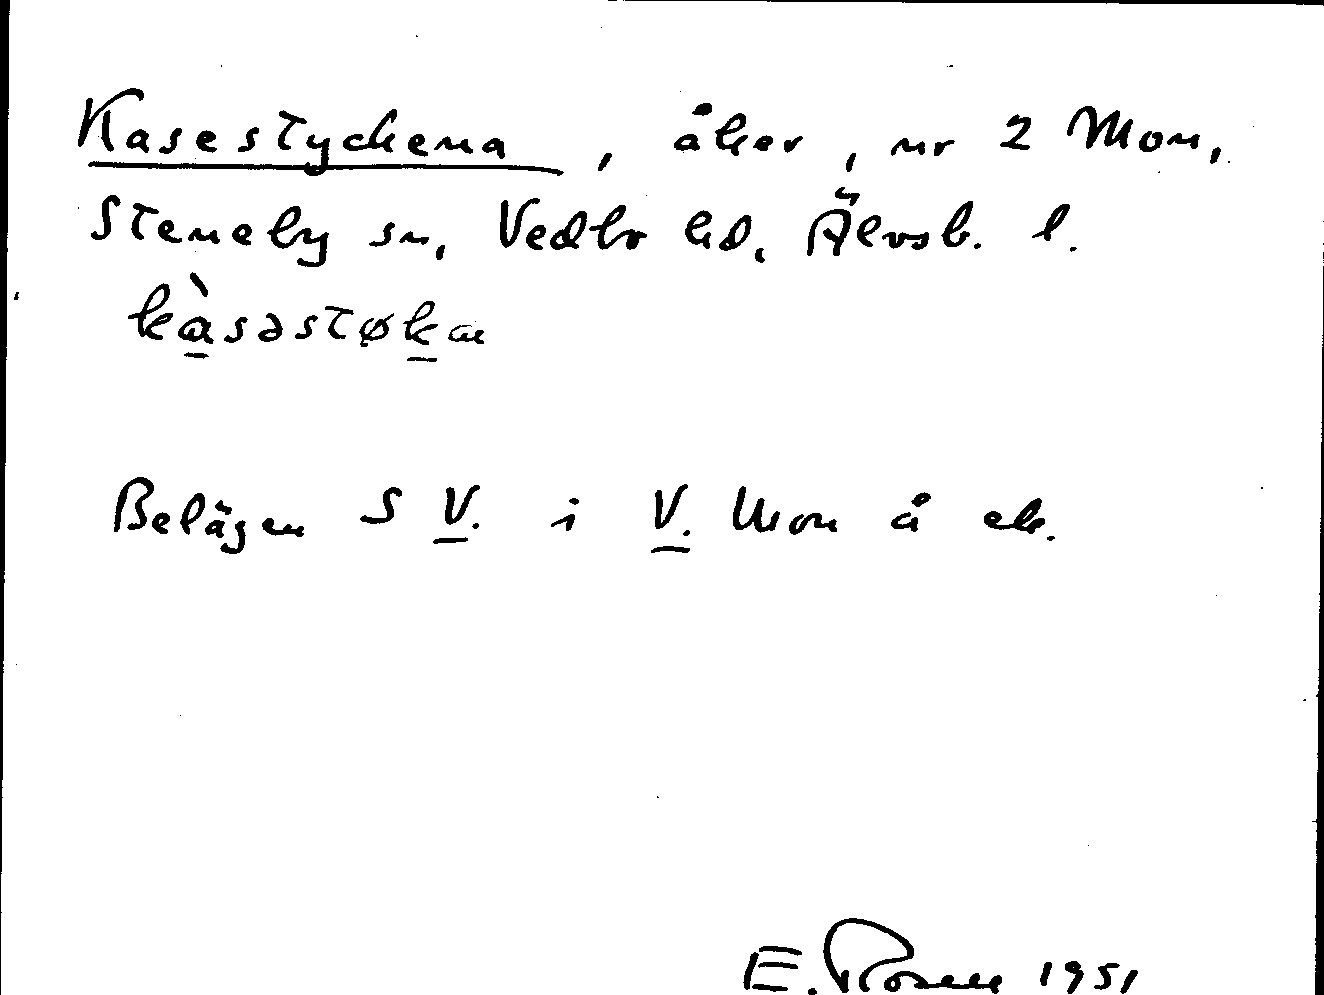 Kasestyckena, åker, nr 2 Mon,
Steneby sn, Vedbo hd, Älvsb. l.
kàsəstøkæ
Belägen S V. i V. Mon å ek.
E. Rosell 1951